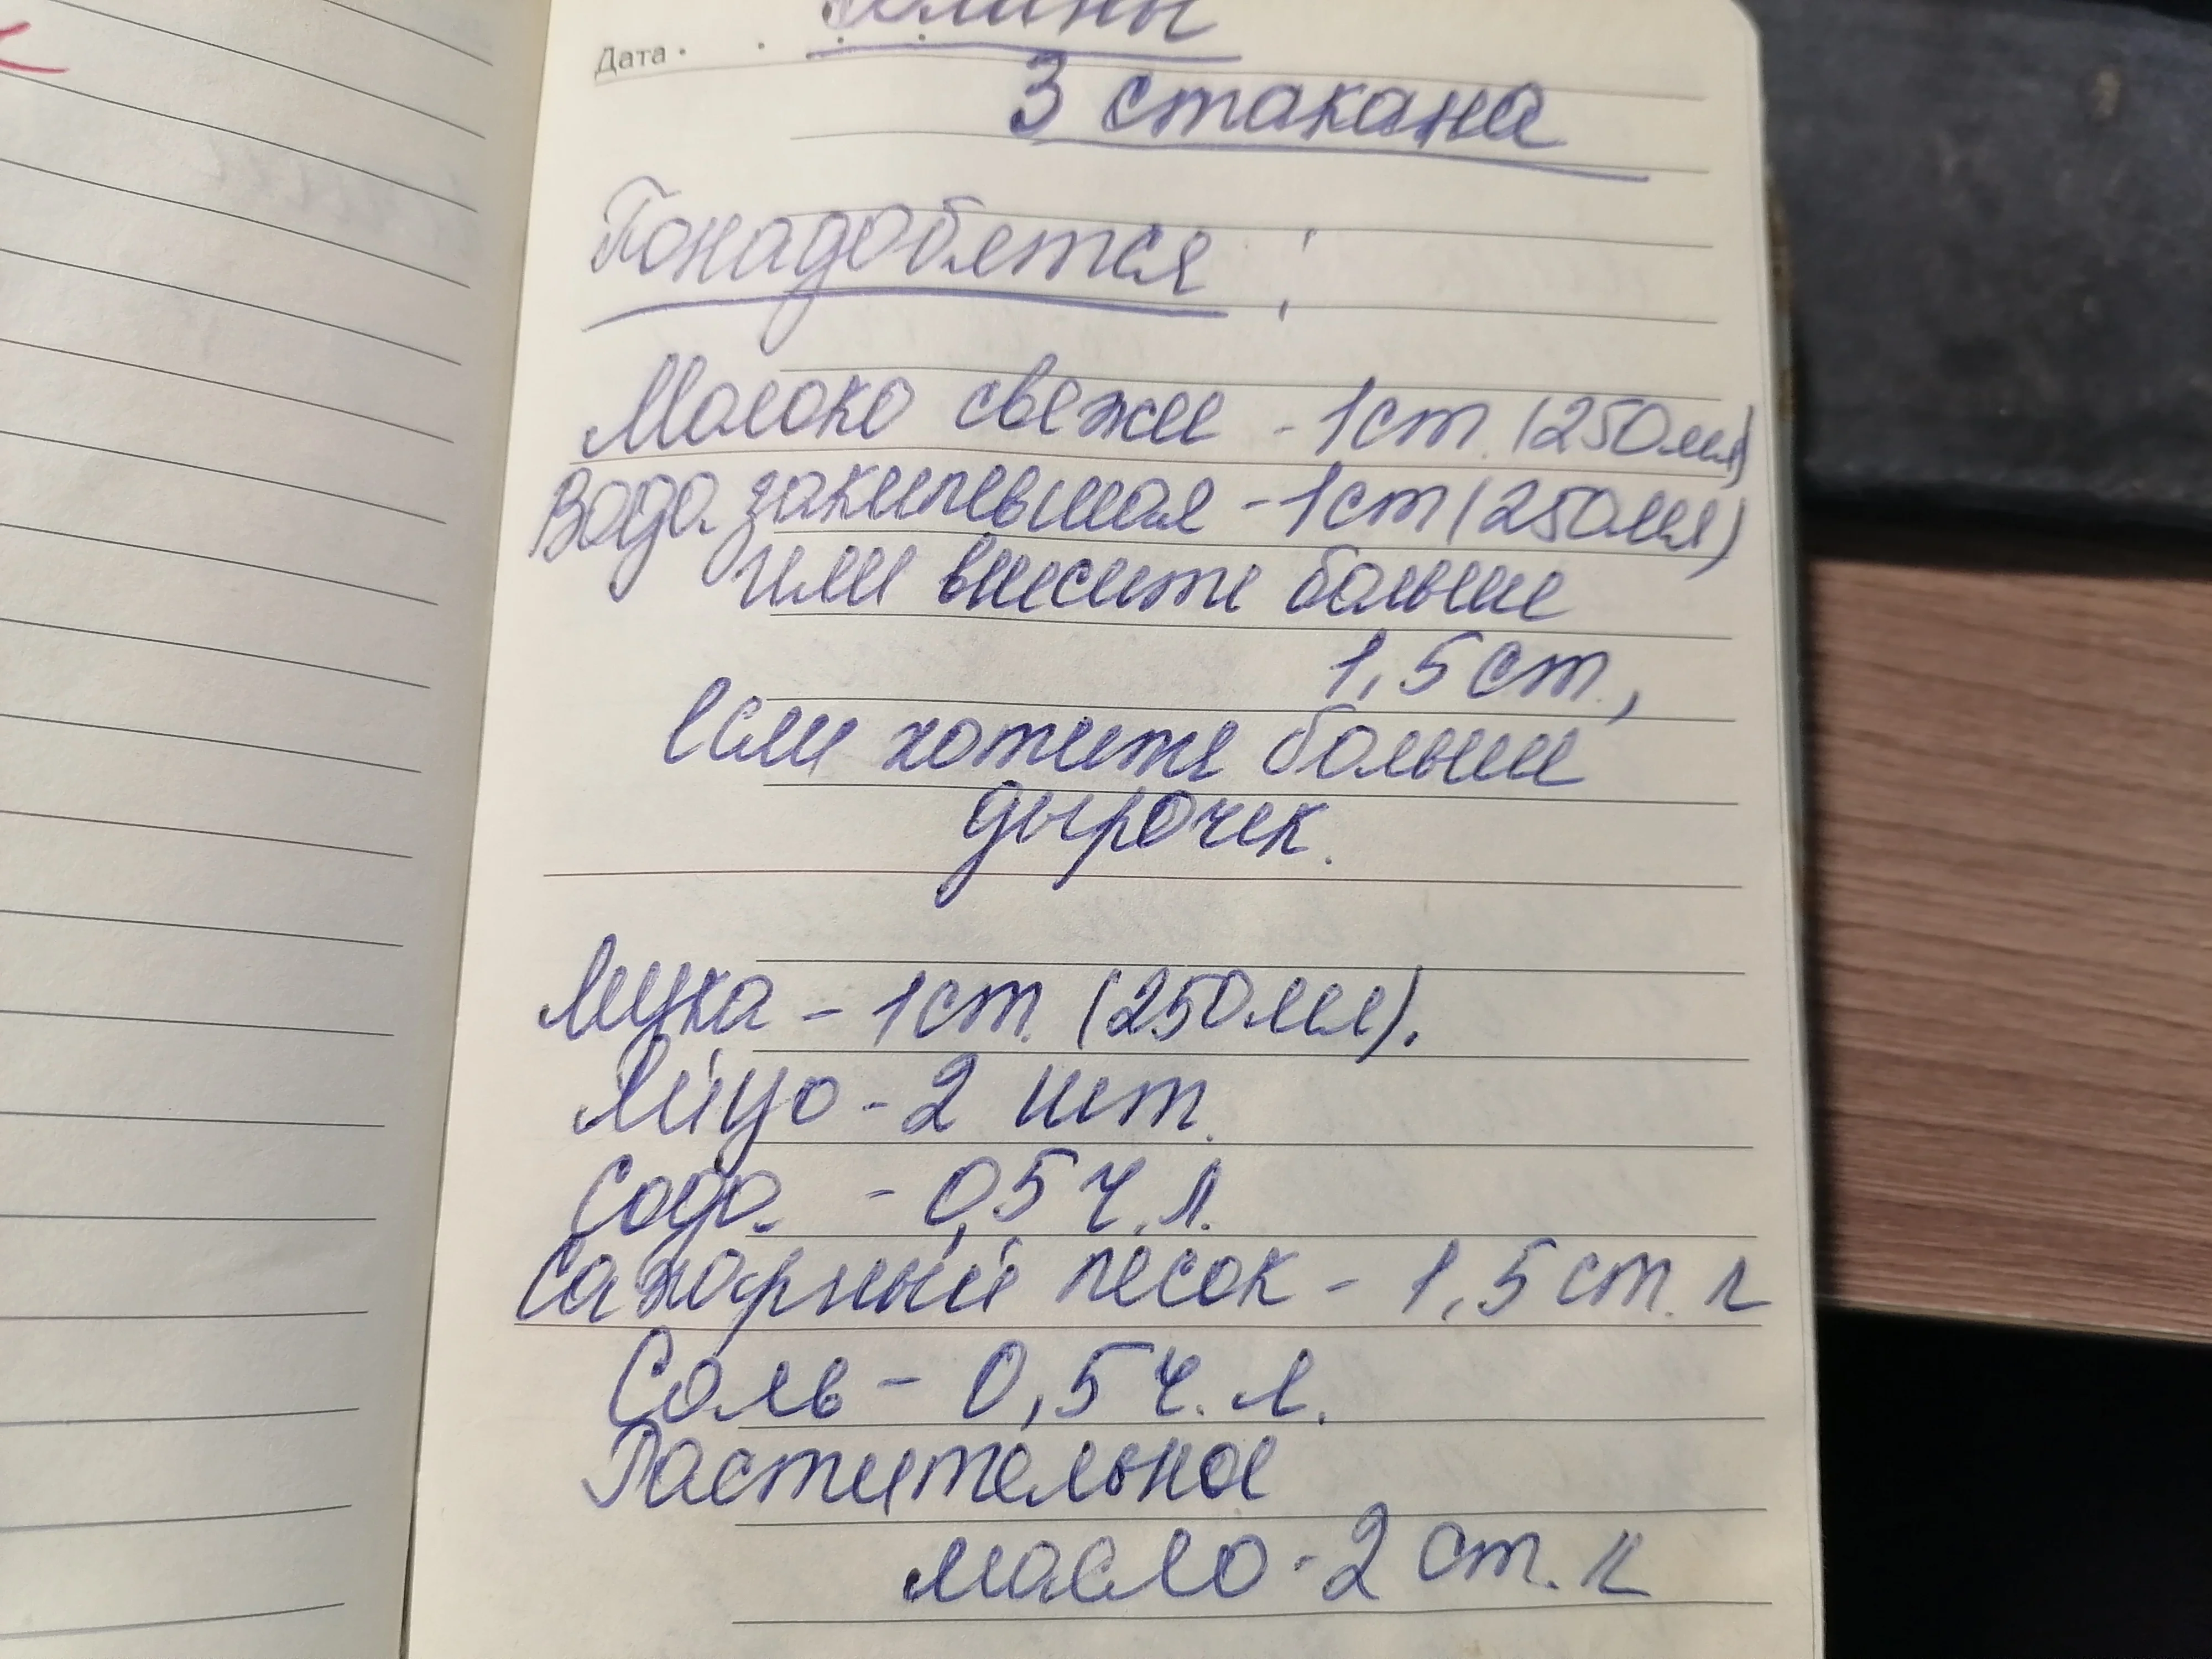 Дата
Блины
3 стакана
Понадобятся:
Молоко свежее - 1 ст. (250мл)
Вода закипевшая - 1 ст (250мл)
или внесите больше
1,5 ст.,
если хотите больше
дырочек.
Мука - 1 ст. (250мл).
Яйцо - 2 шт.
Сода - 0,5 ч. л.
Сахарный песок - 1,5 ст. л
Соль - 0,5 ч. л.
Растительное
масло - 2 ст. л